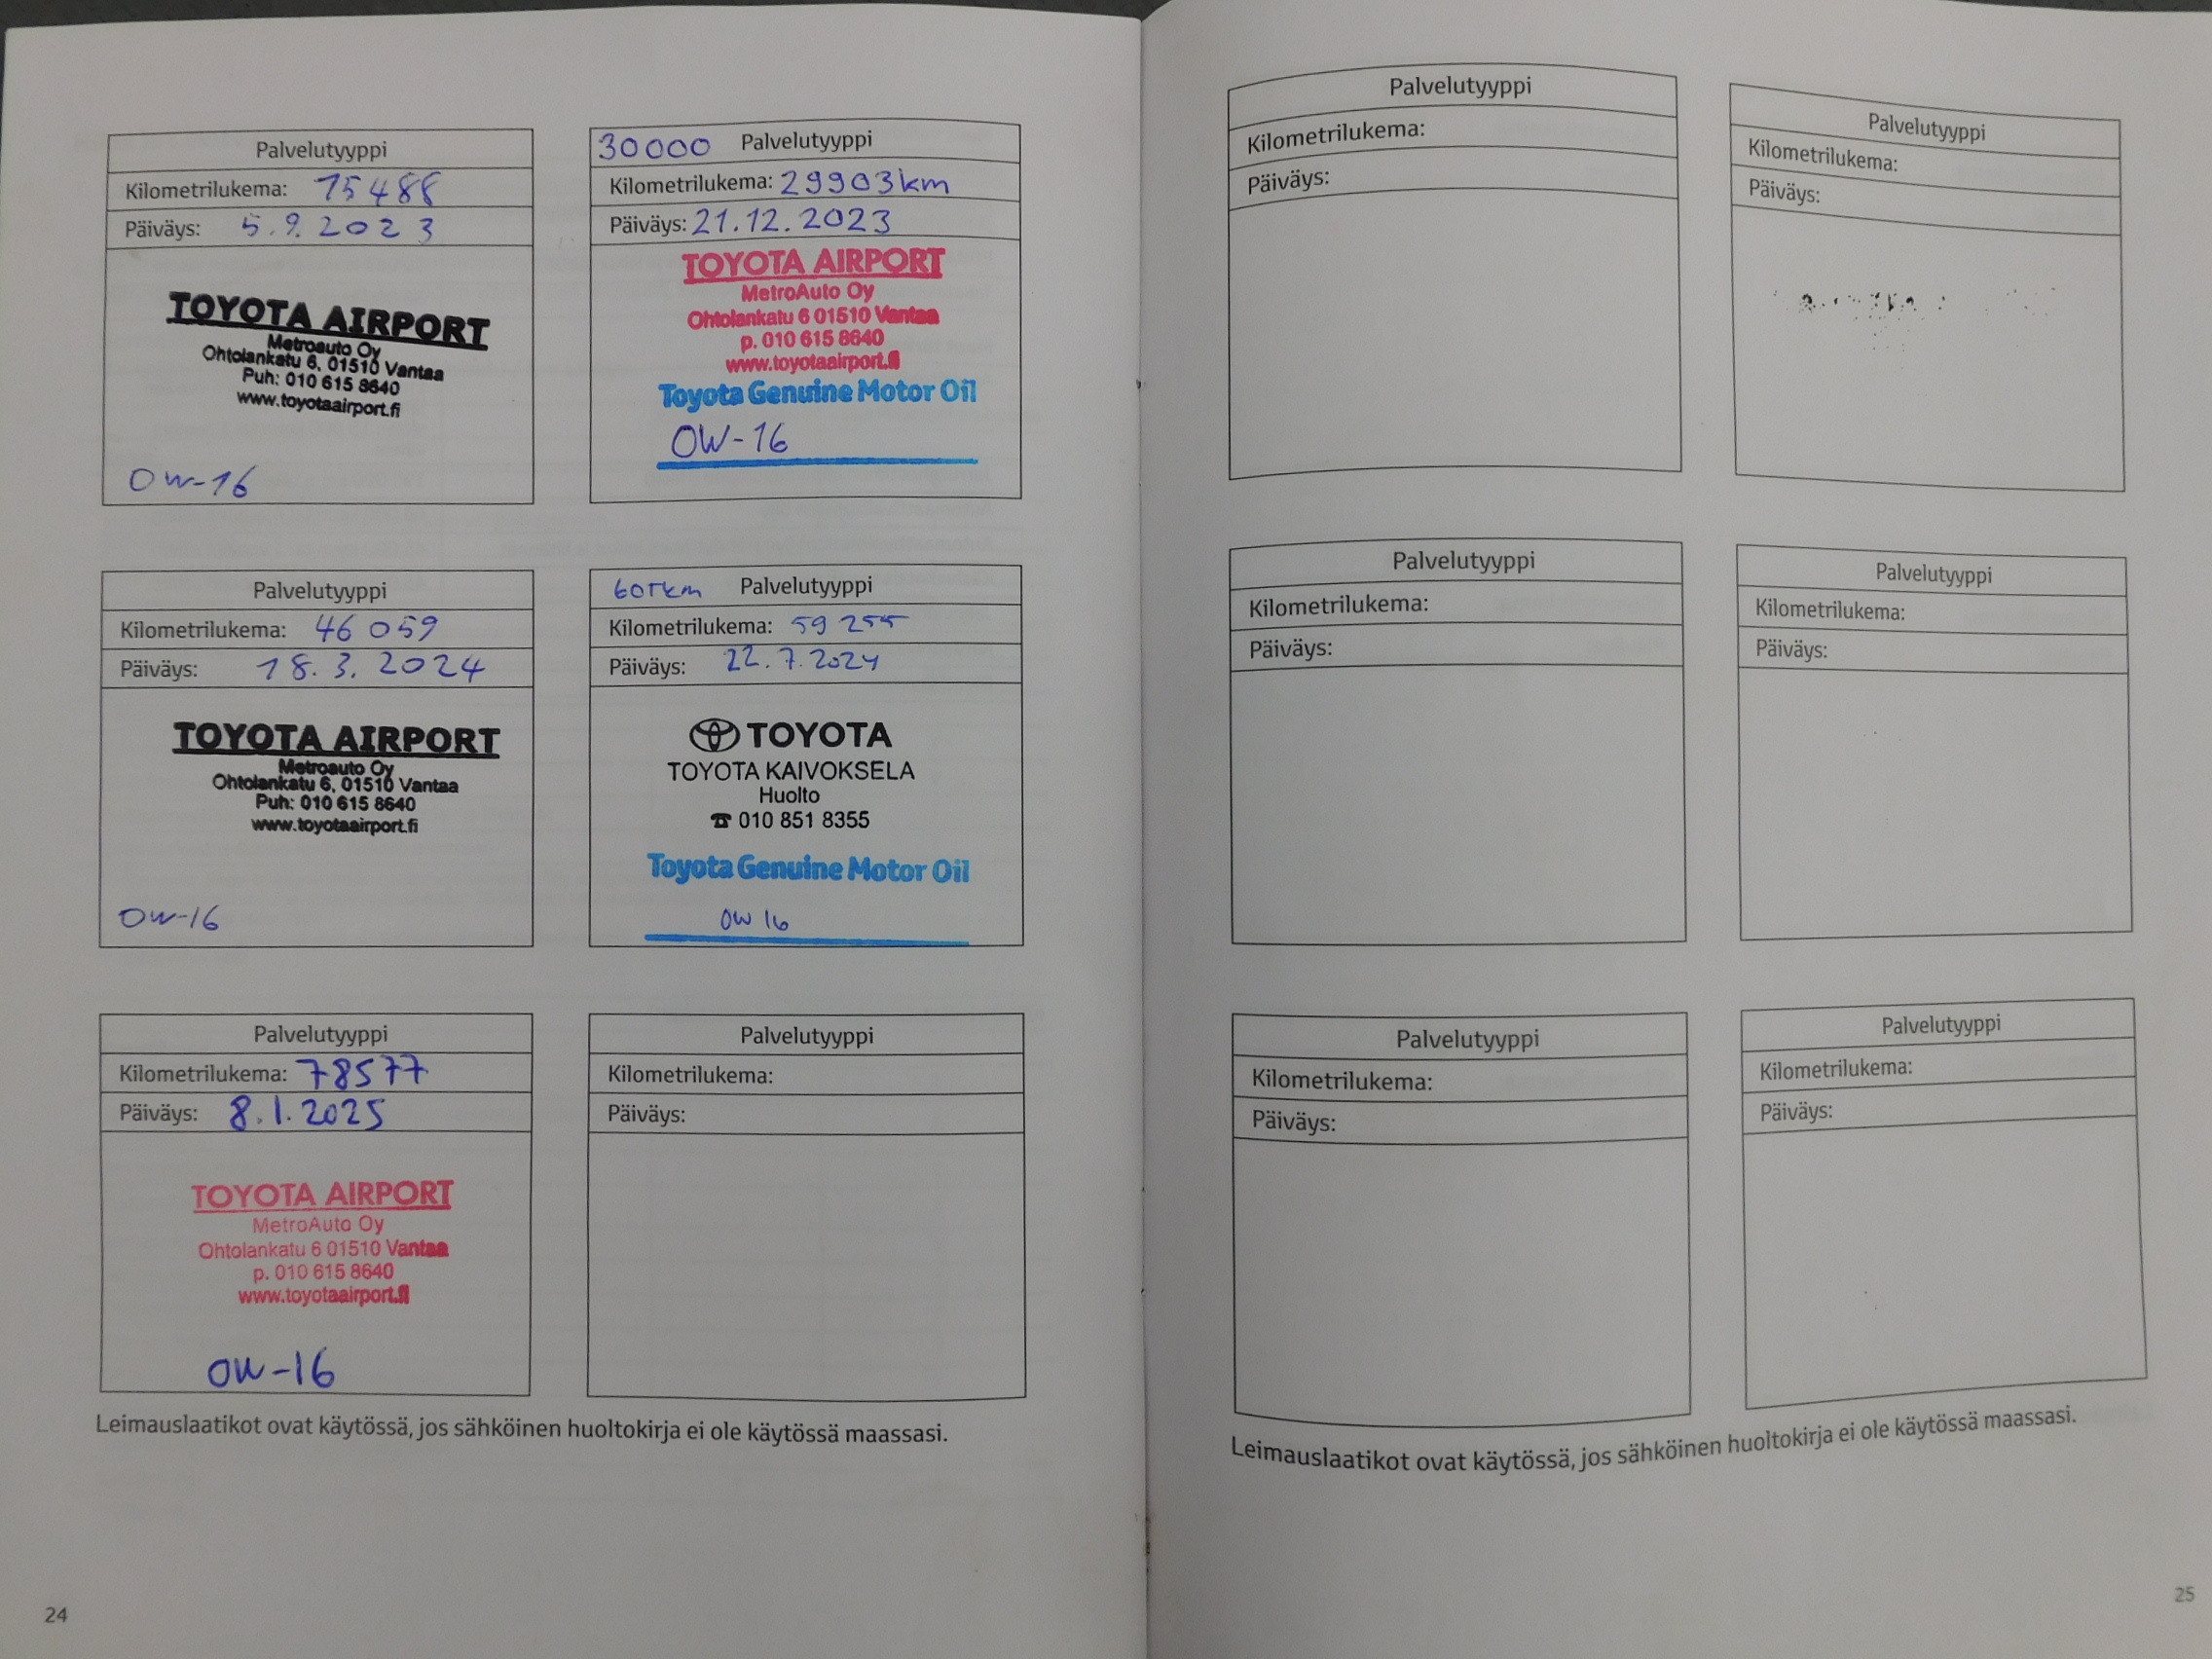 Palvelutyyppi
Kilometrilukema: 15488
Päiväys: 5.9.2023
TOYOTA AIRPORT
Metroauto Oy
Ohtolankatu 6, 01510 Vantaa
Puh: 010 615 8640
www.toyotaairport.fi
OW-16
30000 Palvelutyyppi
Kilometrilukema: 29903km
Päiväys: 21.12.2023
TOYOTA AIRPORT
MetroAuto Oy
Ohtolankatu 6 01510 Vantaa
p. 010 615 8640
www.toyotaairport.fi
Toyota Genuine Motor Oil
OW-16
Palvelutyyppi
Kilometrilukema: 46 059
Päiväys: 18.3.2024
TOYOTA AIRPORT
Metroauto Oy
Ohtolankatu 6, 01510 Vantaa
Puh: 010 615 8640
www.toyotaairport.fi
OW-16
60Tkm Palvelutyyppi
Kilometrilukema: 59 255
Päiväys: 22.7.2024
TOYOTA
TOYOTA KAIVOKSELA
Huolto
☎ 010 851 8355
Toyota Genuine Motor Oil
OW 16
Palvelutyyppi
Kilometrilukema: 78577
Päiväys: 8.1.2025
TOYOTA AIRPORT
MetroAuto Oy
Ohtolankatu 6 01510 Vantaa
p. 010 615 8640
www.toyotaairport.fi
OW-16
Palvelutyyppi
Kilometrilukema:
Päiväys:
Leimauslaatikot ovat käytössä, jos sähköinen huoltokirja ei ole käytössä maassasi.
24
Palvelutyyppi
Kilometrilukema:
Päiväys:
Palvelutyyppi
Kilometrilukema:
Päiväys:
Palvelutyyppi
Kilometrilukema:
Päiväys:
Palvelutyyppi
Kilometrilukema:
Päiväys:
Palvelutyyppi
Kilometrilukema:
Päiväys:
Palvelutyyppi
Kilometrilukema:
Päiväys:
Leimauslaatikot ovat käytössä, jos sähköinen huoltokirja ei ole käytössä maassasi.
25